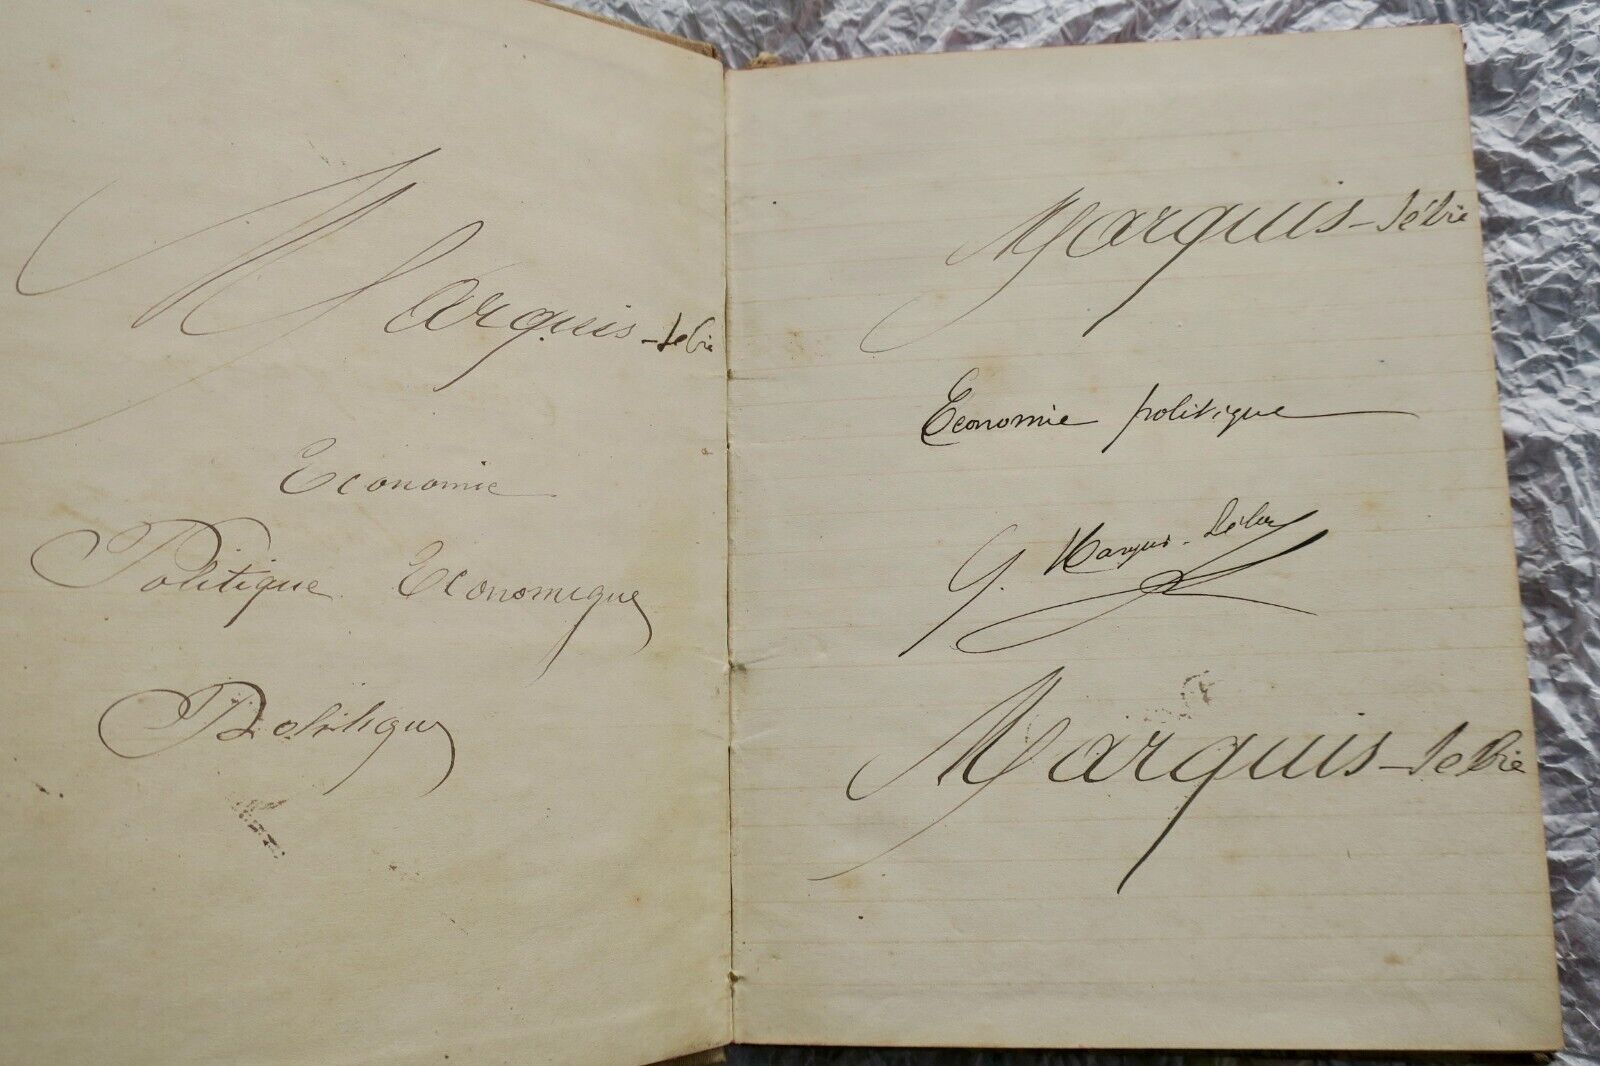 Marquis-Sébie
Economie
Politique Economique
Politique
Marquis-Sébie
Economie politique
G. Marquis-Sébie
Marquis-Sebie